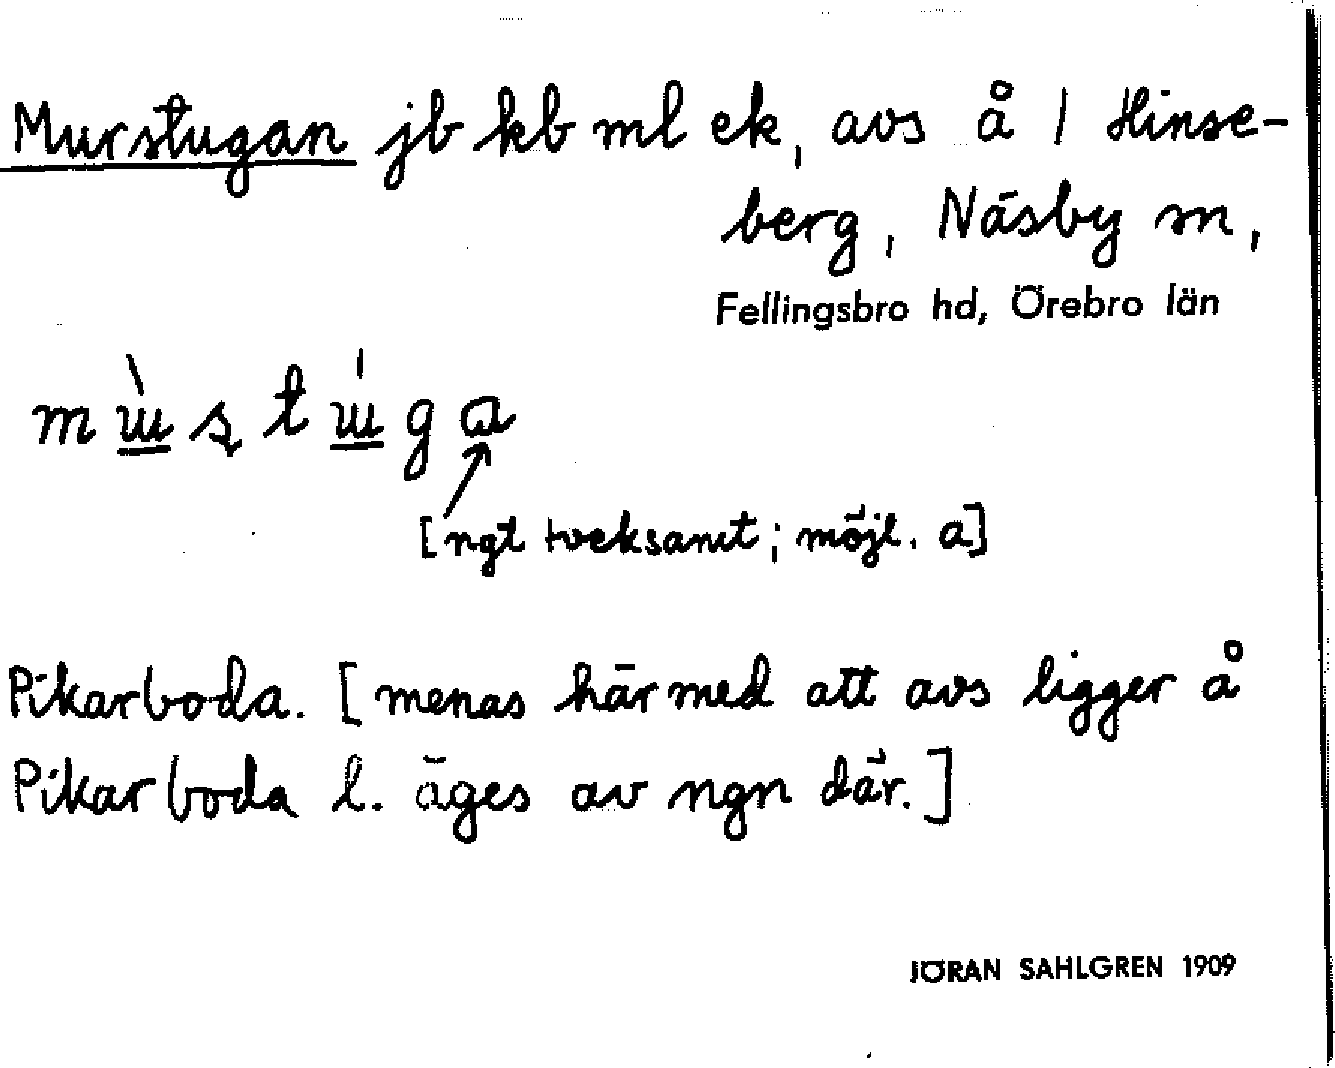 Murstugan jb kb ml ek, avs å 1 Hinse-
berg, Näsby sn,
Fellingsbro hd, Örebro län
[ngt tveksamt; möjl. a]
Pikarboda. [menas härmed att avs ligger å
Pikarboda l. äges av ngn där.]
JÖRAN SAHLGREN 1909